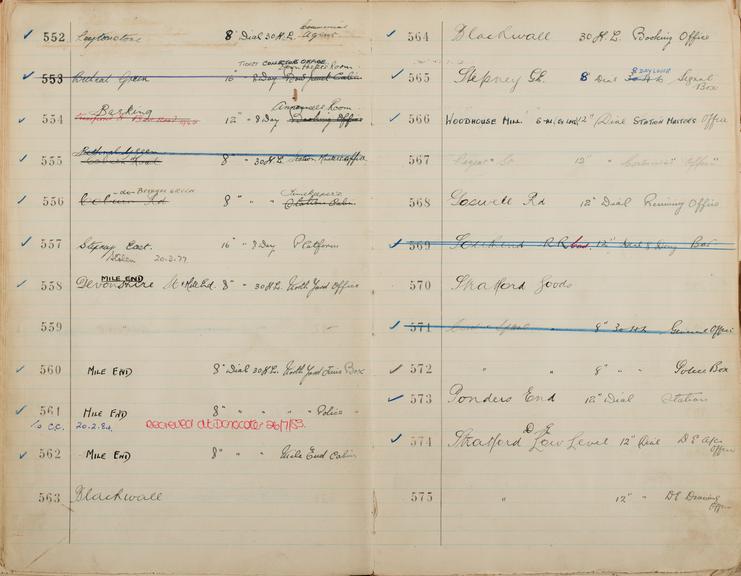 552 Leytonstone 8" Dial 30 H.L. Commercial Agent
TICKET COLLECTOR OFFICE
553 Bethnal Green 16" 8 Day
Barking Announcers Room
554 12" - 8 Day Booking Office
Bethnal Green
555 Coburn Road 8" - 30 H.L. Station Masters Office
GREEN
556 Coburn Rd 8" " " Station Cabin
557 Stepney East. 16" - 8 Day Platform
Stolen 20.2.77
MILE END
558 Devonshire St Mile End. 8" - 30 H.L. North Yard Office
559
560 MILE END 8" Dial 30 H.L. North Yard Box
561 MILE END 8" " " " Police "
To C.C. 20.2.84 Recieved at Doncaster 26/7/83.
562 MILE END 8" " " Mile End Cabin
563 Blackwall
564 Blackwall 30 H.L. Booking Office
8 DAY LEVER
565 Stepney 8" Dial 30 H.L. Signal Box
566 WOODHOUSE MILL 12" Dial STATION MASTERS Office
567 12" "
568 Goswell Rd 12" Dial Running Office
569 12" Dial 8 Day Bar
570 Stratford Goods
571 8" 30 H.L. General Office
572 " " 8" " " Police Box
573 Ponders End 12" Dial Station
574 Stratford Low Level 12" Dial D E Office
575 " 12" " DE Drawing Office